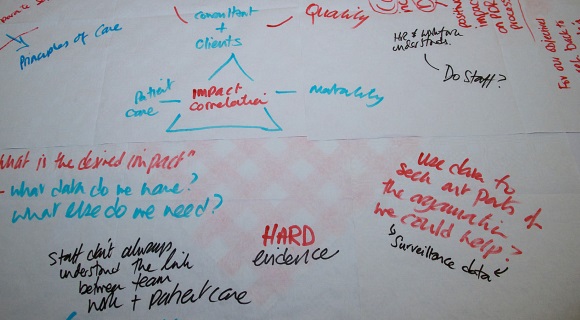 Principles of Care
consultant
+
clients
Quality
HR & workforce
understands.
Do Staff?
For our objectives
process
Patient
care
impact
correlation
mortality
What is the desired impact"
- what data do we have?
what else do we need?
Staff don't always
understand the link
between team
work + patient care
HARD
evidence
use data to
seek out parts of
the organisation
we could help?
Surveillance data